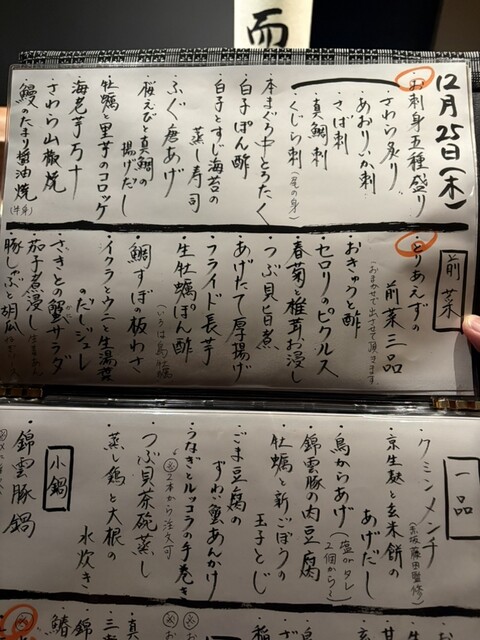 而
12月25日(木)
お刺身五種盛り
さわら炙り
あおりいか刺
さば刺
真鯛刺
くじら刺(尾の身)
本まぐろ中とろたく
白子ぽん酢
白子とすじ海苔の
蒸し寿司
ふぐ唐あげ
桜えびと真鯛の
揚げだし
牡蠣と里芋のコロッケ
海老芋万十
さわら山椒焼
鰻のたまり醤油焼(半身)
前菜
とりあえずの
前菜三品
(おまかせで出させて頂きます)
おきゅうと酢
セロリのピクルス
春菊と椎茸お浸し
つぶ貝旨煮
あげたて厚揚げ
フライド長芋
生牡蠣ぽん酢
鯛すぼの板わさ
イクラとウニと生湯葉
のだしジュレ
さきとろ蟹サラダ
茄子煮浸し
豚しゃぶと胡瓜
一品
クミンメンチ
(赤坂 藤田監修)
京生麸と玄米餅の
あげだし
鳥からあげ(塩orタレ 2個から)
錦雲豚の肉豆腐
牡蠣と新ごぼうの
玉子とじ
ごま豆腐の
ずわい蟹あんかけ
うなぎとルッコラの手巻き
2本から注文可
つぶ貝茶碗蒸し
蒸し鶏と大根の
水炊き
小鍋
錦雲豚鍋